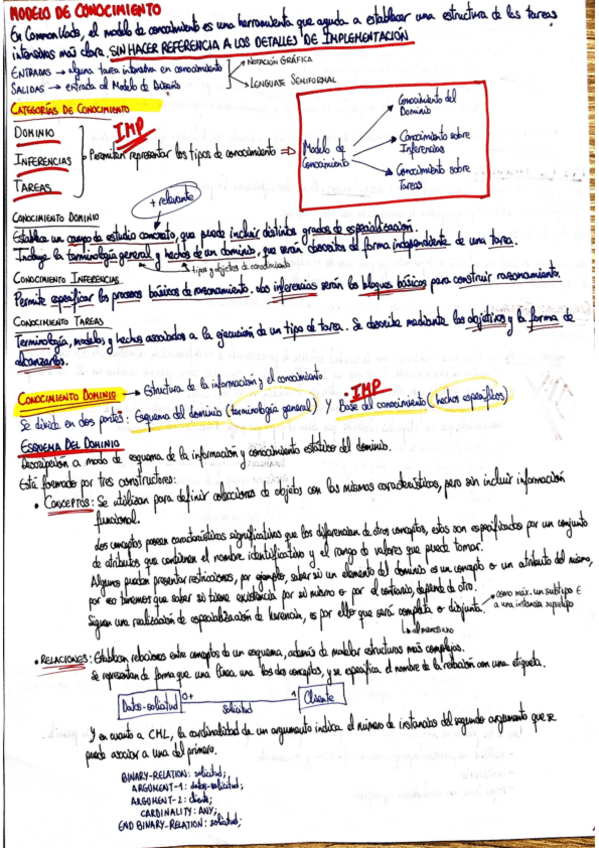 MODELO DE CONOCIMIENTO
En CommonKads, el modelo de conocimiento es una herramienta que ayuda a establecer una estructura de las tareas
intensivas más clara. SIN HACER REFERENCIA A LOS DETALLES DE IMPLEMENTACIÓN
ENTRADAS → alguna tarea intensiva en conocimiento
NOTACIÓN GRÁFICA
SALIDAS → entrada al Modelo de Diseño
LENGUAJE SEMIFORMAL
CATEGORÍAS DE CONOCIMIENTO
DOMINIO
INFERENCIAS
TAREAS
IMP
Permiten representar los tipos de conocimiento ⇒
Modelo de
Conocimiento
Conocimiento del
Dominio
Conocimiento sobre
Inferencias
Conocimiento sobre
Tareas
+ relevante
CONOCIMIENTO DOMINIO
Establece un campo de estudio concreto, que puede incluir distintos grados de especialización.
Incluye la terminología general y hechos de un dominio, que serán descritos de forma independiente de una tarea.
tipos y objetos de conocimiento
CONOCIMIENTO INFERENCIAS
Permite especificar los procesos básicos de razonamiento. Las inferencias serán los bloques básicos para construir razonamiento.
CONOCIMIENTO TAREAS
Terminología, modelos y hechos asociados a la ejecución de un tipo de tarea. Se describe mediante los objetivos y la forma de
alcanzarlos.
CONOCIMIENTO DOMINIO → Estructura de la información y el conocimiento
IMP
Se divide en dos partes: Esquema del dominio (terminología general) Y Base del conocimiento (hechos específicos)
ESQUEMA DEL DOMINIO
Descripción a modo de esquema de la información y conocimiento estático del dominio.
Está formado por tres constructores:
• CONCEPTOS: Se utilizan para definir colecciones de objetos con las mismas características, pero sin incluir información
funcional.
Los conceptos poseen características significativas que los diferencian de otros conceptos, estas son especificadas por un conjunto
de atributos que contienen el nombre identificativo y el rango de valores que puede tomar.
Algunos pueden presentar restricciones, por ejemplo, saber si un elemento del dominio es un concepto o un atributo del mismo,
por eso tenemos que saber si tiene existencia por si mismo o por el contrario, depende de otro.
Siguen una realización de especialización de herencia, es por ello que será completa o disjunta.
como máx. un subtipo ∈
a una instancia supertipo
al menos uno
• RELACIONES: Establecen relaciones entre conceptos de un esquema, además de modelar estructuras más complejas.
Se representan de forma que una línea una los dos conceptos, y se especifica el nombre de la relación con una etiqueta.
Datos-solicitud
0+
solicitud
1
Cliente
Y en cuanto a CML, la cardinalidad de un argumento indica el número de instancias del segundo argumento que se
puede asociar a una del primero.
BINARY-RELATION: solicitud;
ARGUMENT-1: datos-solicitud;
ARGUMENT-2: cliente;
CARDINALITY: ANY;
END BINARY-RELATION: solicitud;